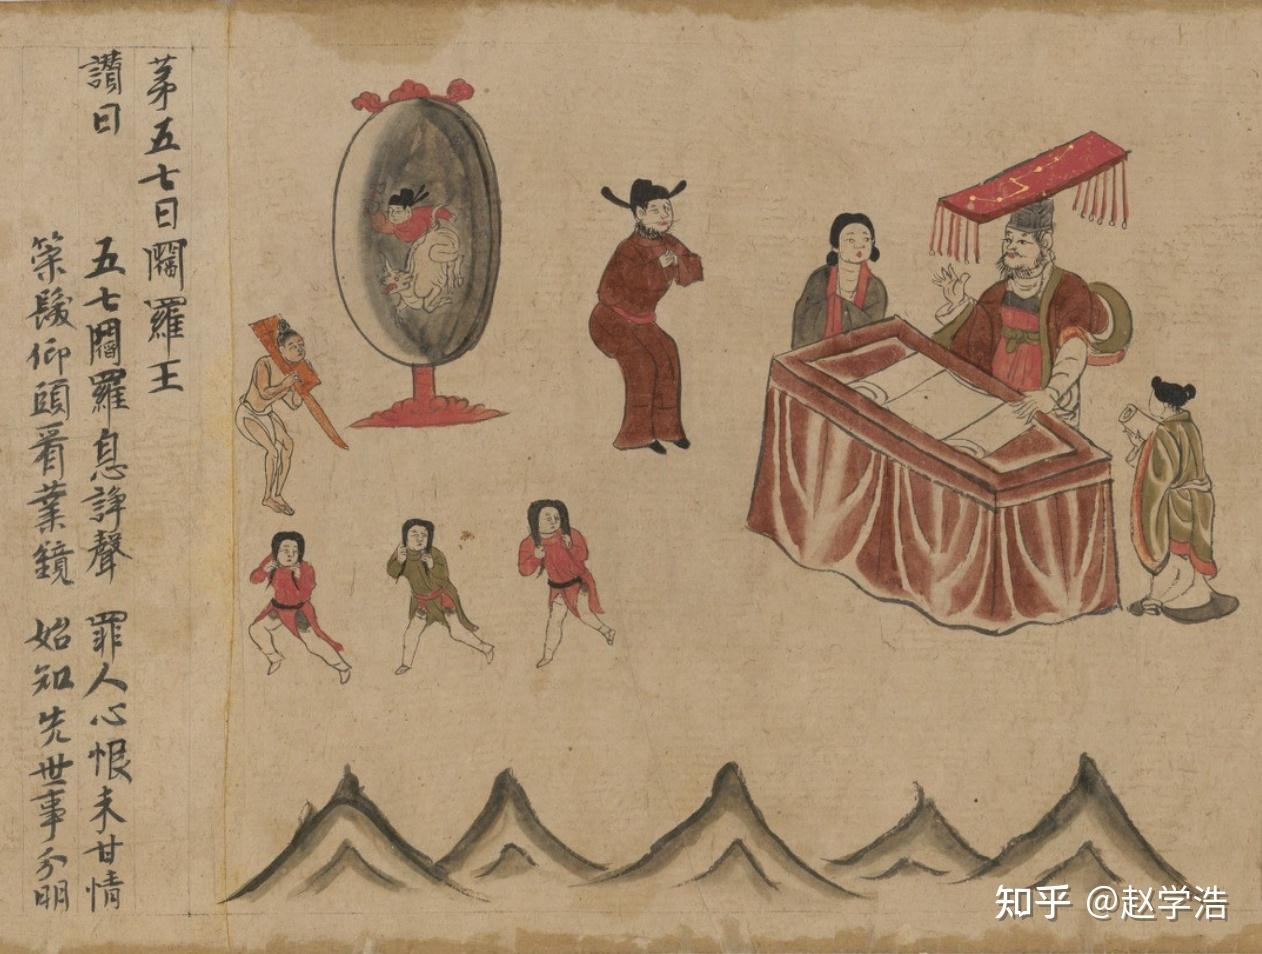 苐五七日閻羅王
讃曰 五七閻羅息諍聲 罪人心恨未甘情
策髮仰頭看業鏡 始知先世事分明
知乎 @赵学浩